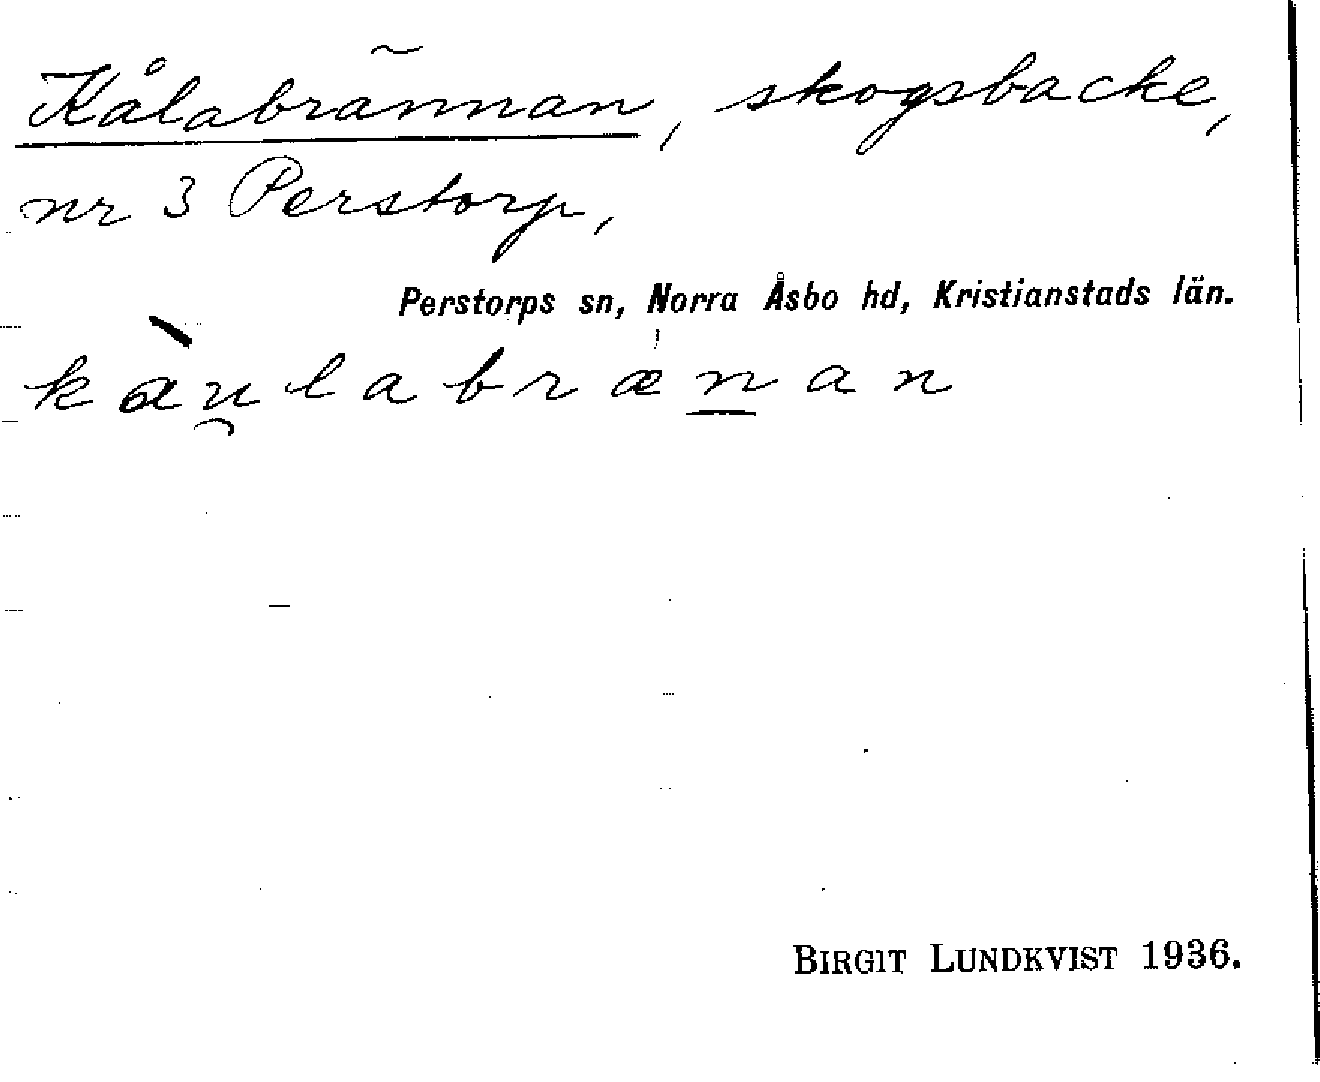 Kålabrännan, skogsbacke,
nr 3 Perstorp,
Perstorps sn, Norra Åsbo hd, Kristianstads län.
kàu̯labrænan
BIRGIT LUNDKVIST 1936.